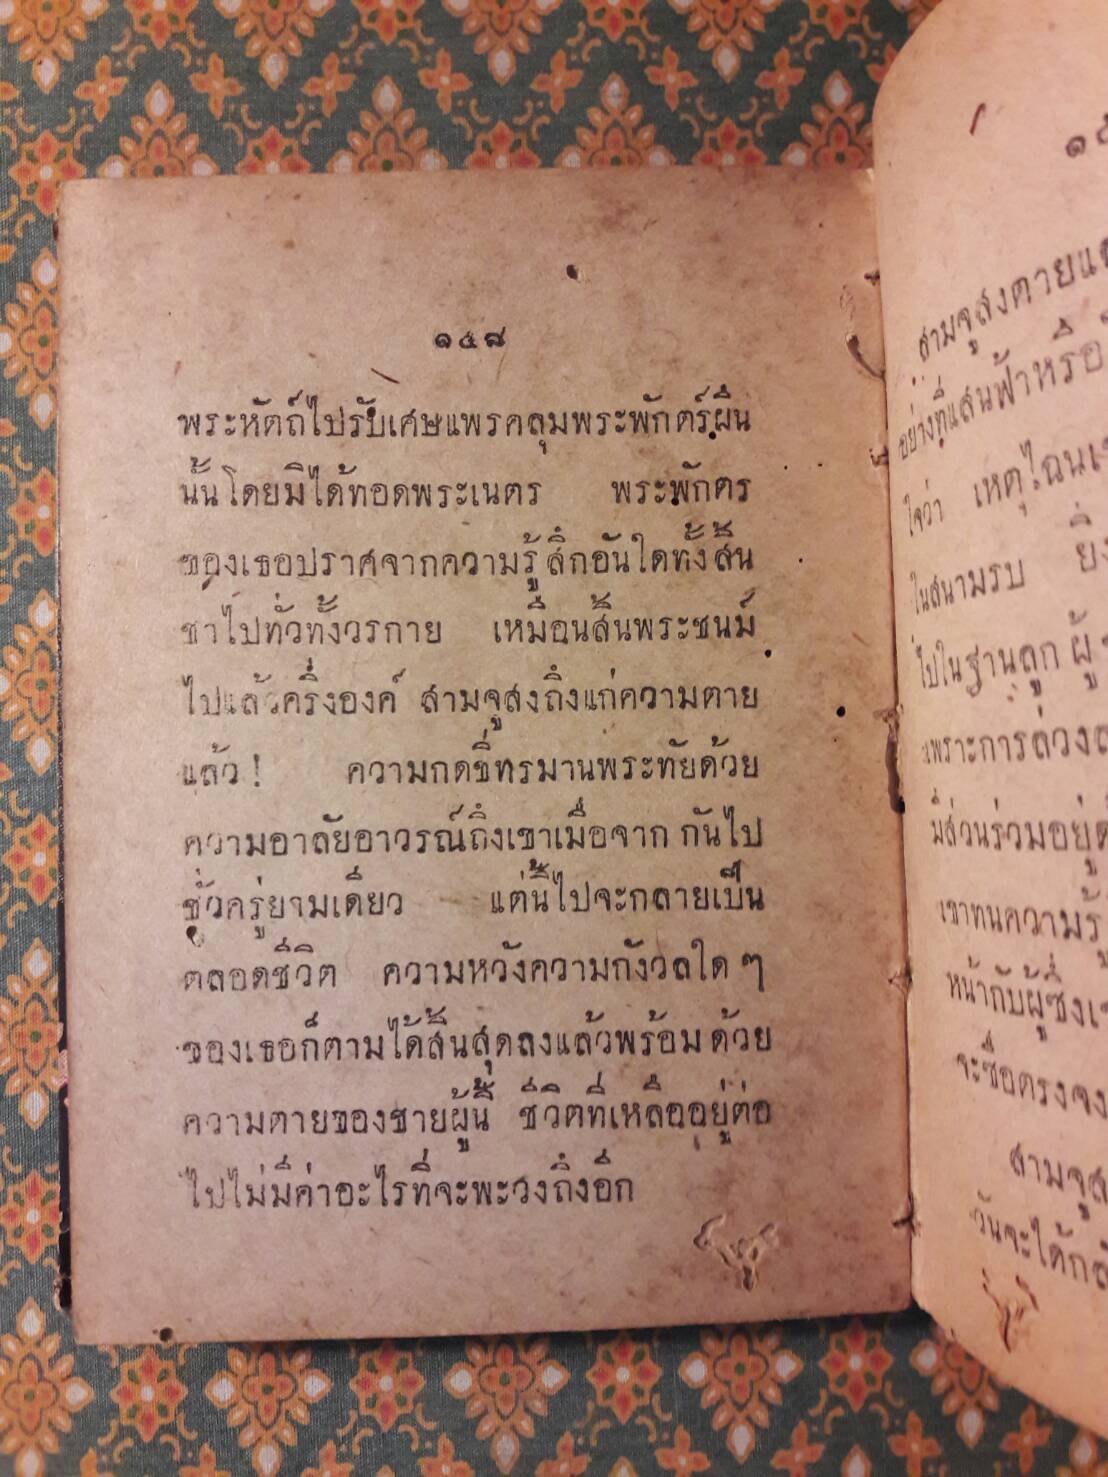 ๑๕๘
พระหัตถ์ไปรับเศษแพรคลุมพระพักตร์ผืน
นั้นโดยมิได้ทอดพระเนตร พระพักตร
ของเธอปราศจากความรู้สึกอันใดทั้งสิ้น
ชาไปทั่วทั้งวรกาย เหมือนสิ้นพระชนม์
ไปแล้วครึ่งองค์ สามจูสงถึงแก่ความตาย
แล้ว! ความกดขี่ทรมานพระทัยด้วย
ความอาลัยอาวรณ์ถึงเขาเมื่อจาก กันไป
ชั่วครู่ยามเดียว แต่นี้ไปจะกลายเป็น
ตลอดชีวิต ความหวังความกังวลใด ๆ
ของเธอก็ตามได้สิ้นสุดลงแล้วพร้อมด้วย
ความตายของชายผู้นี้ ชีวิตที่เหลืออยู่ต่อ
ไปไม่มีค่าอะไรที่จะพะวงถึงอีก
สามจูสงตายแ
อย่างที่แสนฟ้าหรือ
ใจว่า เหตุไฉน
ในสนามรบ ยิ่ง
ไปในฐานลูก ผู้
เพราะการล่วง
มีส่วนร่วมอยู่
เขาทนความรู้
หน้ากับผู้ซึ่ง
จะซื่อตรง
สามจูส
วันจะได้กล